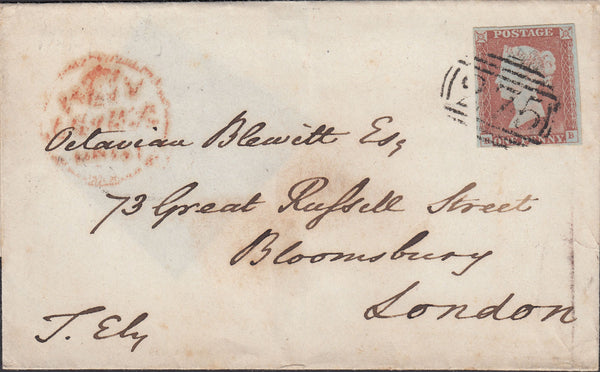 POSTAGE
Octavian Blewitt Esq
73 Great Russell Street
Bloomsbury
London
T. Ely